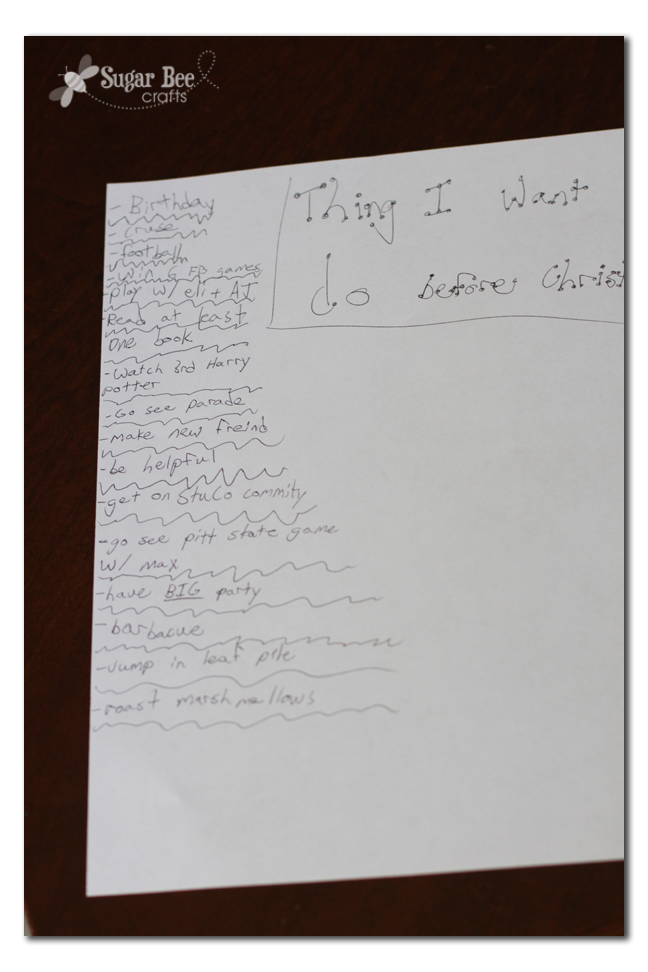 Sugar Bee
crafts
Thing I Want
do before Christ
- Birthday
- cruse
- football
- Win 6 FB games
- play w/ eli + AJ
Read at least
one book
- Watch 3rd Harry
potter
- Go see parade
- make new freind
- be helpful
- get on StuCo commity
- go see pitt state game
w/ max
- have BIG party
- barbacue
- Jump in leaf pile
- roast marshmellows